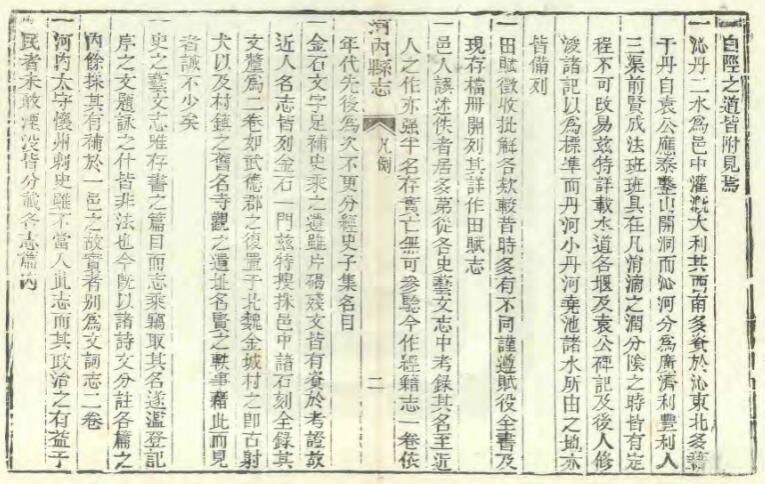 白陘之道皆附見焉
一沁丹二水爲邑中灌漑大利其西南多資於沁東北多藉
于丹自袁公應泰鑿山開洞而沁河分爲廣濟利豐利人
三渠前賢成法班班具在凡涓滴之潤分陰之時皆有定
程不可改易兹特詳載水道各堰及袁公碑記及後人修
浚諸記以爲標準而丹河小丹河堯池諸水所由之地亦
皆備列
一田賦徵收批解各欵較昔時多有不同謹遵賦役全書及
現存檔冊開列其詳作田賦志
一邑人譔述佚者居多第從各史藝文志中考録其名至近
人之作亦强半名存實亡無可參驗今作經籍志一卷依
河内縣志
凡例
二
年代先後爲次不更分經史子集名目
一金石文字足補史乘之遺雖片碣殘文皆有資於考證故
近人名志皆列金石一門兹特搜採邑中諸石刻全録其
文釐爲二卷如武德郡之復置于北魏金城村之即古射
犬以及村鎮之舊名寺觀之遺址名賢之軼事藉此而見
者誠不少矣
一史之藝文志雅存書之篇目而志乘竊取其名遂濫登記
序之文題詠之什皆非法也今旣以諸詩文分註各篇之
内餘採其有補於一邑之故實者别爲文詞志二卷
一河内太守懷州刺史雖不當入此志而其政治之有益于
民者未敢湮没皆分載各志篇内